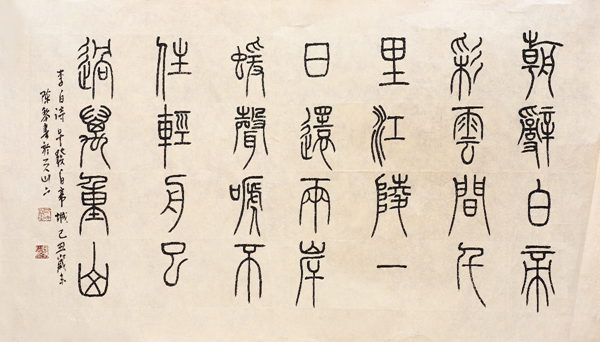 朝辭白帝
彩雲間千
里江陵一
日還兩岸
蝯聲嗁不
住輕舟已
過萬重山
李白诗早發白帝城己丑歲末
陈黎書於天山下